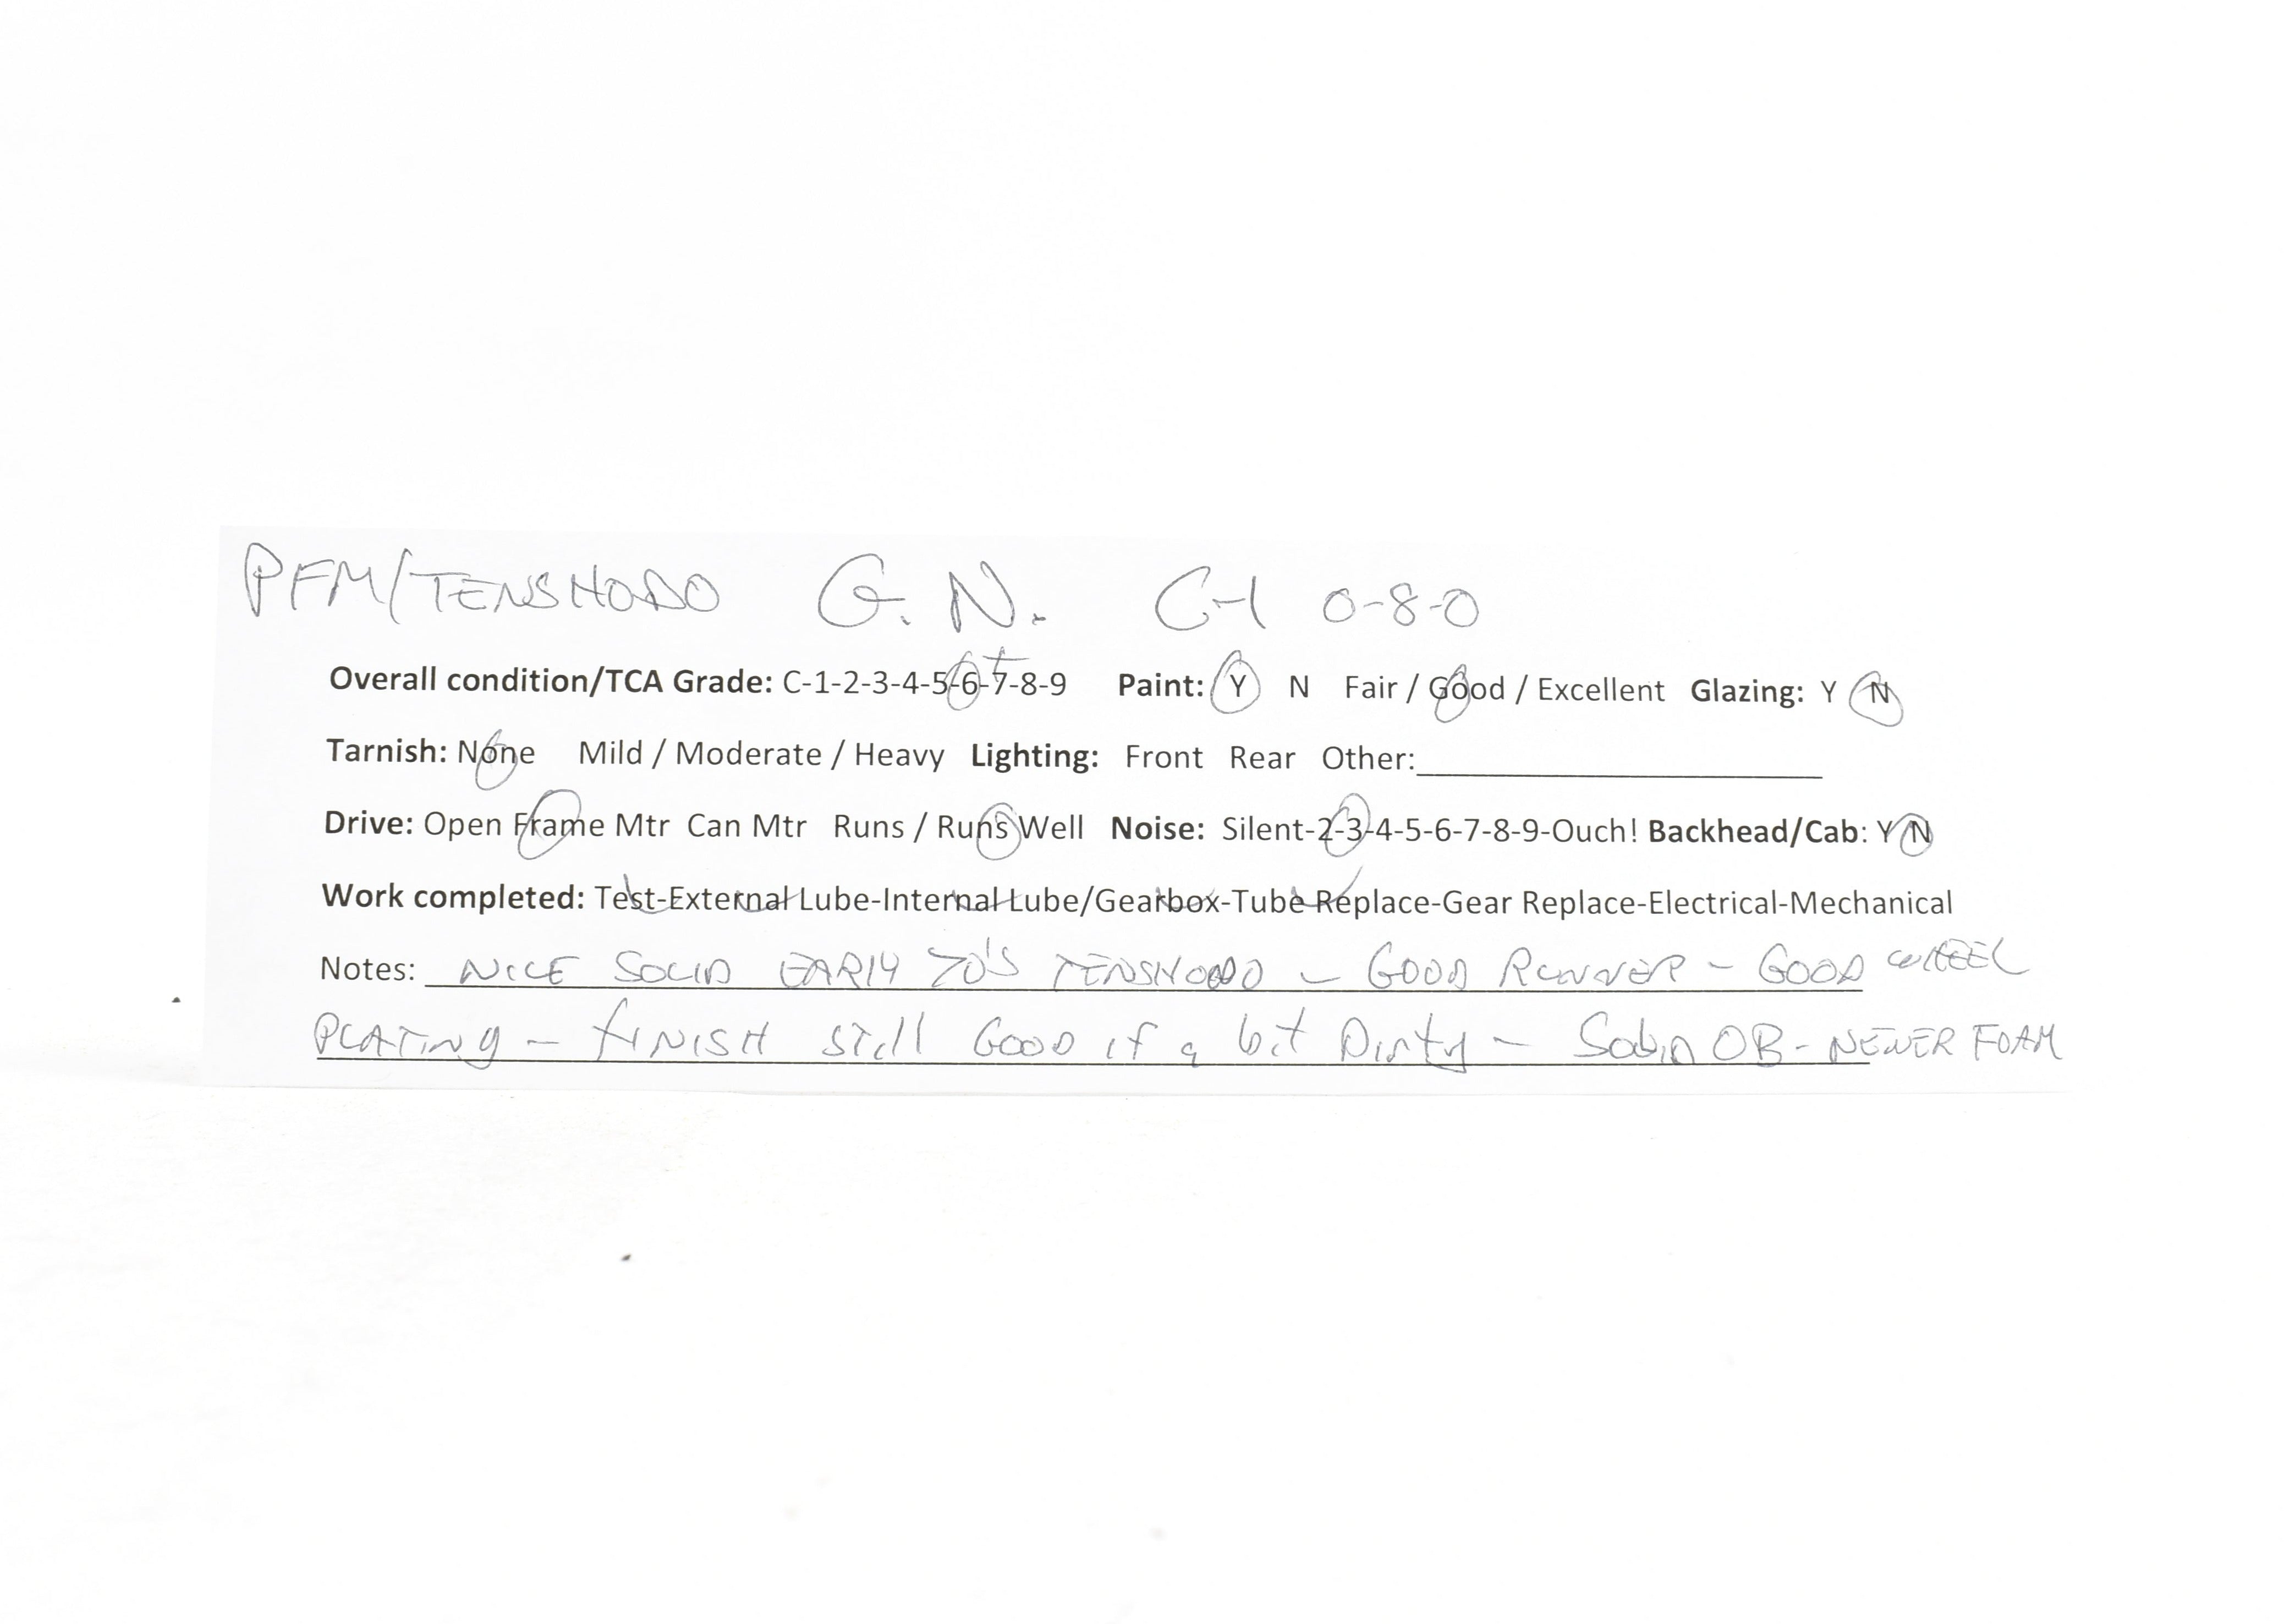 PFM/TENSHODO G.N. C-1 0-8-0
Overall condition/TCA Grade: C-1-2-3-4-5-6-7-8-9 Paint: Y N Fair / Good / Excellent Glazing: Y N
Tarnish: None Mild / Moderate / Heavy Lighting: Front Rear Other:
Drive: Open Frame Mtr Can Mtr Runs / Runs Well Noise: Silent-2-3-4-5-6-7-8-9-Ouch! Backhead/Cab: Y N
Work completed: Test-External Lube-Internal Lube/Gearbox-Tube Replace-Gear Replace-Electrical-Mechanical
Notes: NICE SOLID EARLY 70'S TENSHODO - GOOD RUNNER - GOOD WHEEL
PLATINg - FINISH still GOOD if a bit Dirty - Solid OB - NEWER FOAM